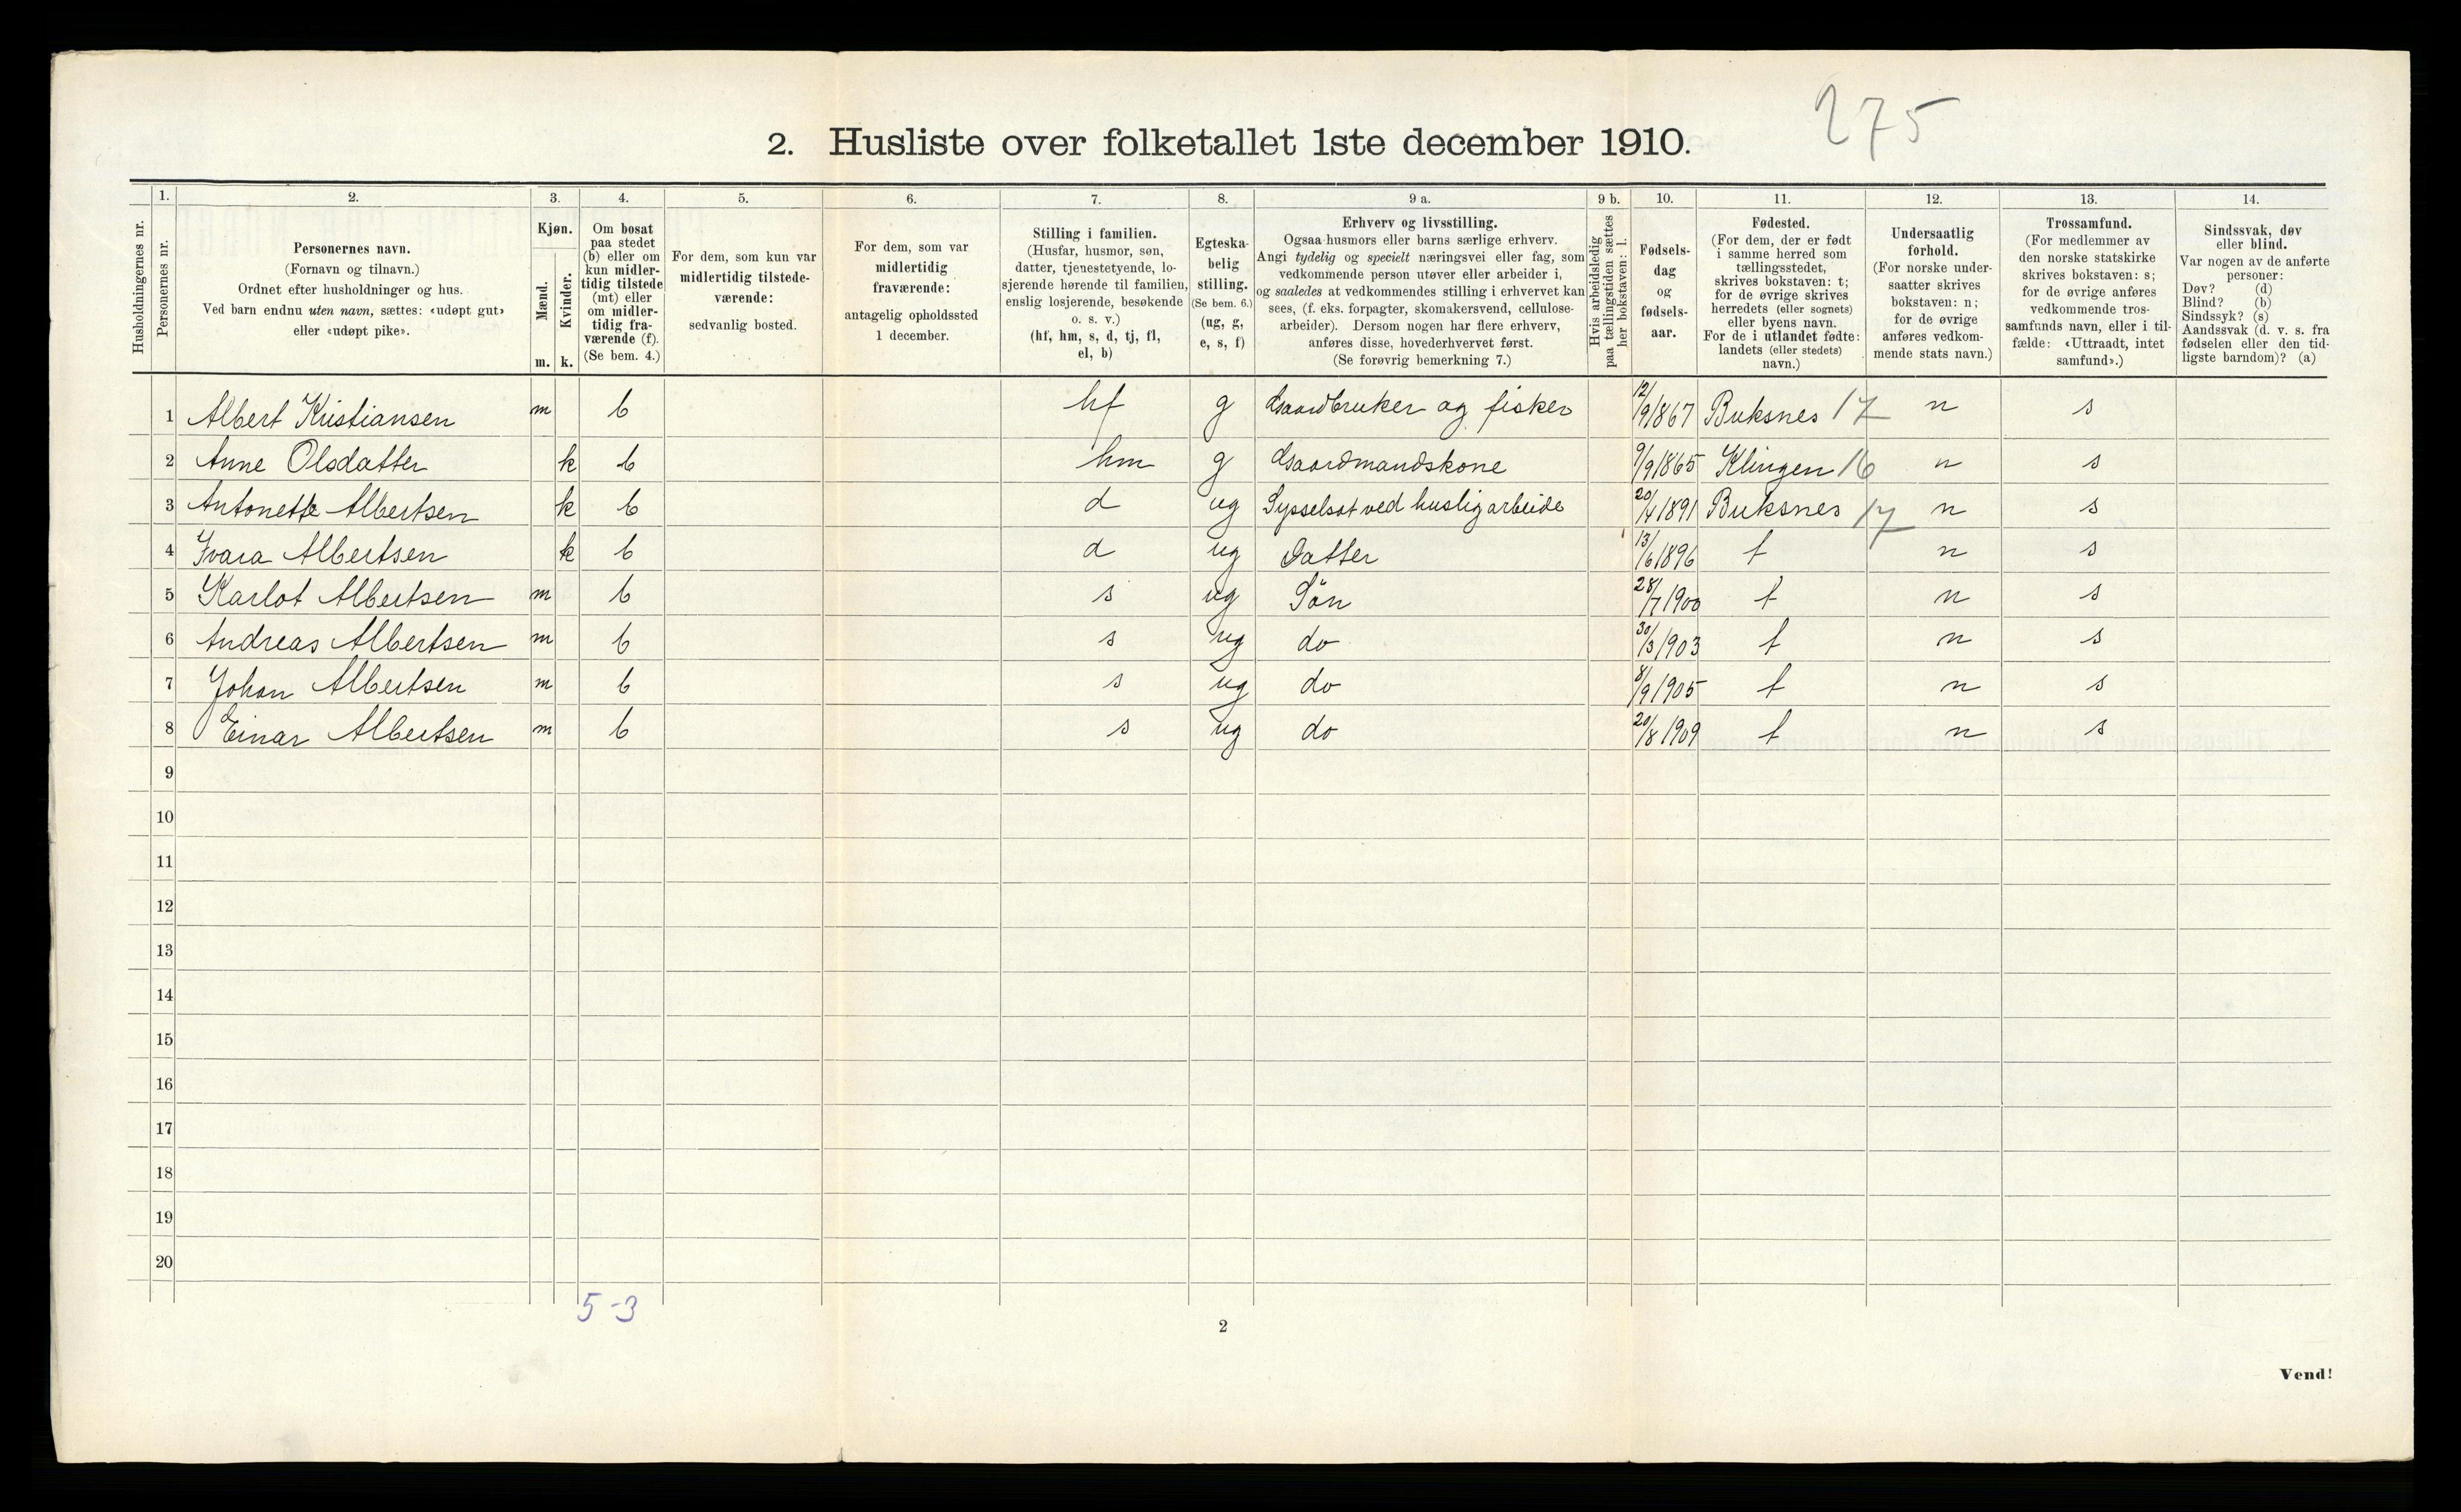 275
2. Husliste over folketallet 1ste december 1910.
Husholdningernes nr.
1. Personernes nr.
2. Personernes navn.
(Fornavn og tilnavn.)
Ordnet efter husholdninger og hus.
Ved barn endnu uten navn, sættes: «udøpt gut»
eller «udøpt pike».
3. Kjøn.
Mænd. m.
Kvinder. k.
4. Om bosat
paa stedet
(b) eller om
kun midler-
tidig tilstede
(mt) eller
om midler-
tidig fra-
værende (f).
(Se bem. 4.)
5. For dem, som kun var
midlertidig tilstede-
værende:
sedvanlig bosted.
6. For dem, som var
midlertidig
fraværende:
antagelig opholdssted
1 december.
7. Stilling i familien.
(Husfar, husmor, søn,
datter, tjenestetyende, lo-
sjerende hørende til familien,
enslig losjerende, besøkende
o. s. v.)
(hf, hm, s, d, tj, fl,
el, b)
8. Egteska-
belig
stilling.
(Se bem. 6.)
(ug, g,
e, s, f)
9 a. Erhverv og livsstilling.
Ogsaa husmors eller barns særlige erhverv.
Angi tydelig og specielt næringsvei eller fag, som
vedkommende person utøver eller arbeider i,
og saaledes at vedkommendes stilling i erhvervet kan
sees, (f. eks. forpagter, skomakersvend, cellulose-
arbeider). Dersom nogen har flere erhverv,
anføres disse, hovederhvervet først.
(Se forøvrig bemerkning 7.)
9 b. Hvis arbeidsledig
paa tællingstiden sættes
her bokstaven: l.
10. Fødsels-
dag
og
fødsels-
aar.
11. Fødested.
(For dem, der er født
i samme herred som
tællingsstedet,
skrives bokstaven: t;
for de øvrige skrives
herredets (eller sognets)
eller byens navn.
For de i utlandet fødte:
landets (eller stedets)
navn.)
12. Undersaatlig
forhold.
(For norske under-
saatter skrives
bokstaven: n;
for de øvrige
anføres vedkom-
mende stats navn.)
13. Trossamfund.
(For medlemmer av
den norske statskirke
skrives bokstaven: s;
for de øvrige anføres
vedkommende tros-
samfunds navn, eller i til-
fælde: «Uttraadt, intet
samfund».)
14. Sindssvak, døv
eller blind.
Var nogen av de anførte
personer:
Døv? (d)
Blind? (b)
Sindssyk? (s)
Aandssvak (d. v. s. fra
fødselen eller den tid-
ligste barndom)? (a)
1 Albert Kristiansen m b hf g Gaardbruker og fisker 12/9 1867 Buksnes 17 n s
2 Anne Olsdatter k b hm g Gaardmandskone 9/9 1865 Klingen 16 n s
3 Antonette Albertsen k b d ug Sysselsat ved huslig arbeide 20/4 1891 Buksnes 17 n s
4 Ivara Albertsen k b d ug Datter 13/6 1896 t n s
5 Karlot Albertsen m b s ug Sön 28/7 1900 t n s
6 Andreas Albertsen m b s ug do 30/3 1903 t n s
7 Johan Albertsen m b s ug do 8/9 1905 t n s
8 Einar Albertsen m b s ug do 20/8 1909 t n s
9
10
11
12
13
14
15
16
17
18
19
20
5-3
2
Vend!